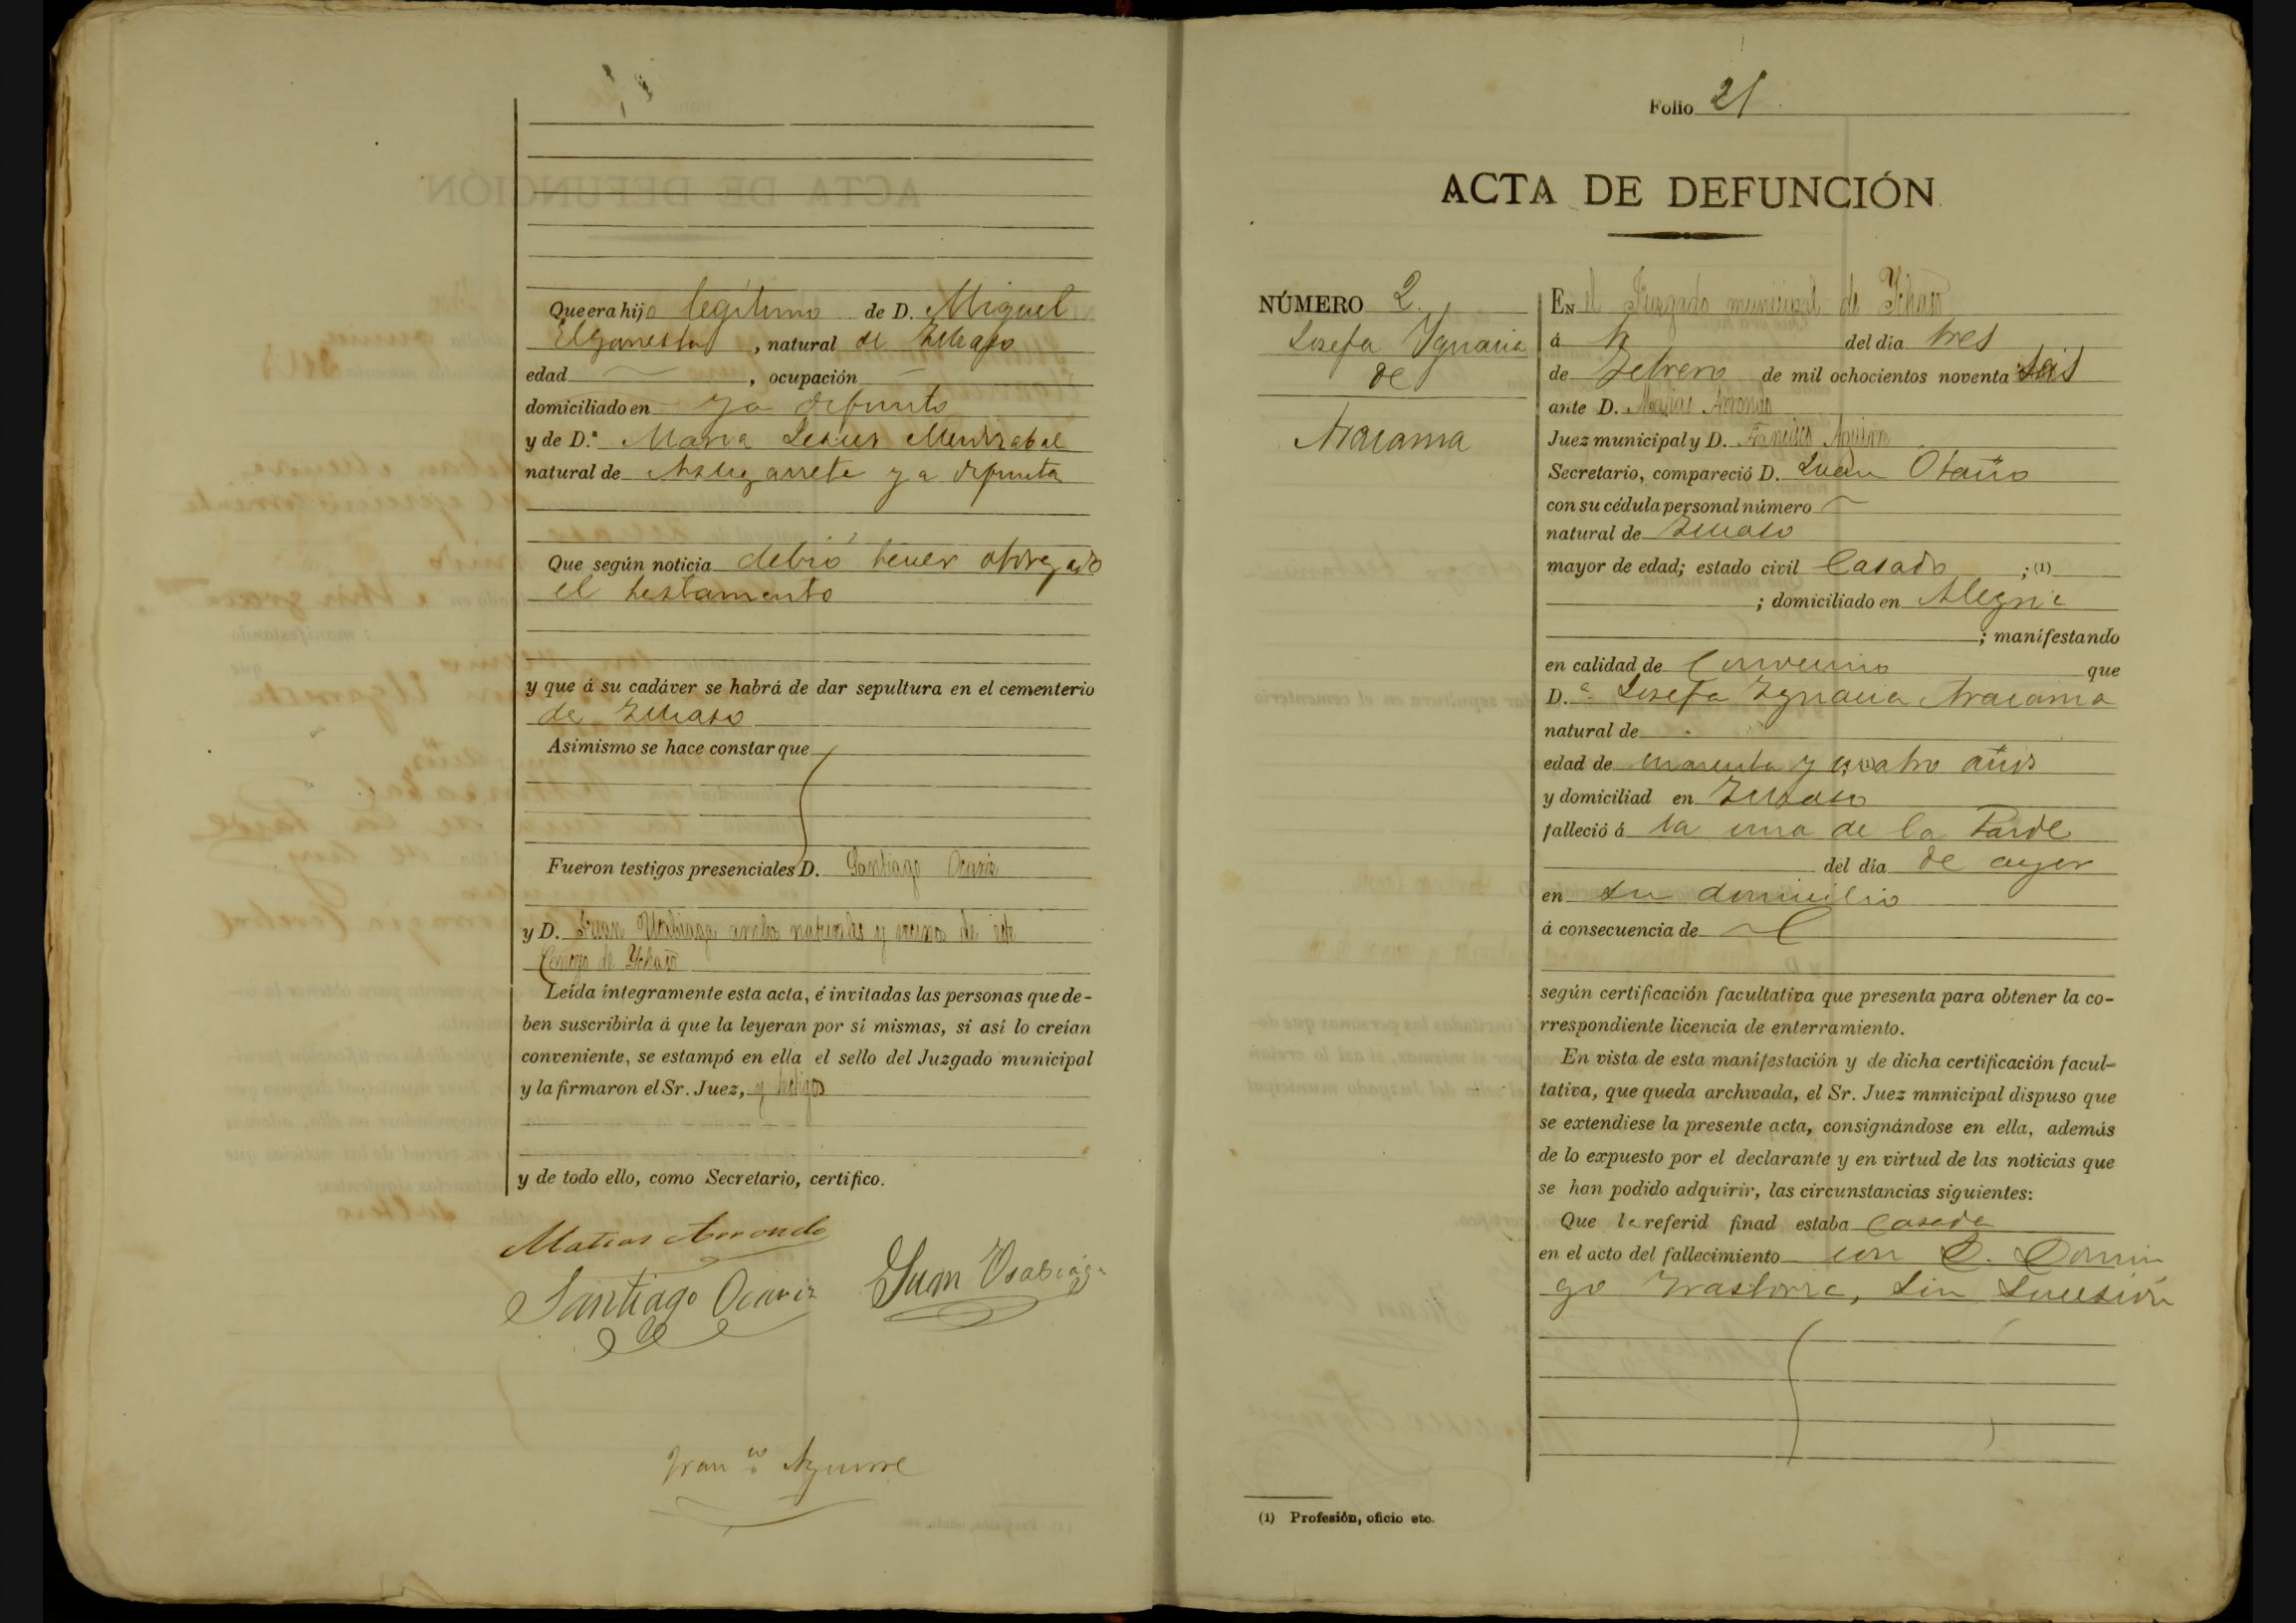 Que era hijo legítimo de D. Miguel
Elgarresta, natural de Ychaso
edad , ocupación
domiciliado en ya difunto
y de D.ª Maria Jesus Mendizabal
natural de Astigarreta ya difunta
Que según noticia debió tener otorgado
el testamento
y que á su cadáver se habrá de dar sepultura en el cementerio
de Ychaso
Asimismo se hace constar que
Fueron testigos presenciales D. Santiago Ocariz
y D. Juan Usabiaga ambos naturales y vecinos de este
Concejo de Ychaso
Leída íntegramente esta acta, é invitadas las personas que de-
ben suscribirla á que la leyeran por sí mismas, si así lo creían
conveniente, se estampó en ella el sello del Juzgado municipal
y la firmaron el Sr. Juez, y testigos
y de todo ello, como Secretario, certifico.
Matias Arrondo
Santiago Ocariz Juan Usabiaga
Fran.co Aguirre
Folio 21
ACTA DE DEFUNCIÓN
NÚMERO 2.
Josefa Ygnacia
de
Aracama
En el Juzgado municipal de Ychaso
á del dia tres
de Febrero de mil ochocientos noventa seis
ante D. Matias Arrondo
Juez municipal y D. Francisco Aguirre
Secretario, compareció D. Juan Otaño
con su cédula personal número
natural de Ychaso
mayor de edad; estado civil Casado ; (1)
; domiciliado en Alegria
; manifestando
en calidad de que
D.ª Josefa Ygnacia Aracama
natural de
edad de cuarenta y cuatro años
y domiciliad en Ychaso
falleció á la una de la Tarde
del dia de ayer
en su domicilio
á consecuencia de
según certificación facultativa que presenta para obtener la co-
rrespondiente licencia de enterramiento.
En vista de esta manifestación y de dicha certificación facul-
tativa, que queda archivada, el Sr. Juez mnnicipal dispuso que
se extendiese la presente acta, consignándose en ella, además
de lo expuesto por el declarante y en virtud de las noticias que
se han podido adquirir, las circunstancias siguientes:
Que la referid finad estaba Casada
en el acto del fallecimiento con D. Domin
go Yrastorza, sin sucesión
(1) Profesión, oficio etc.